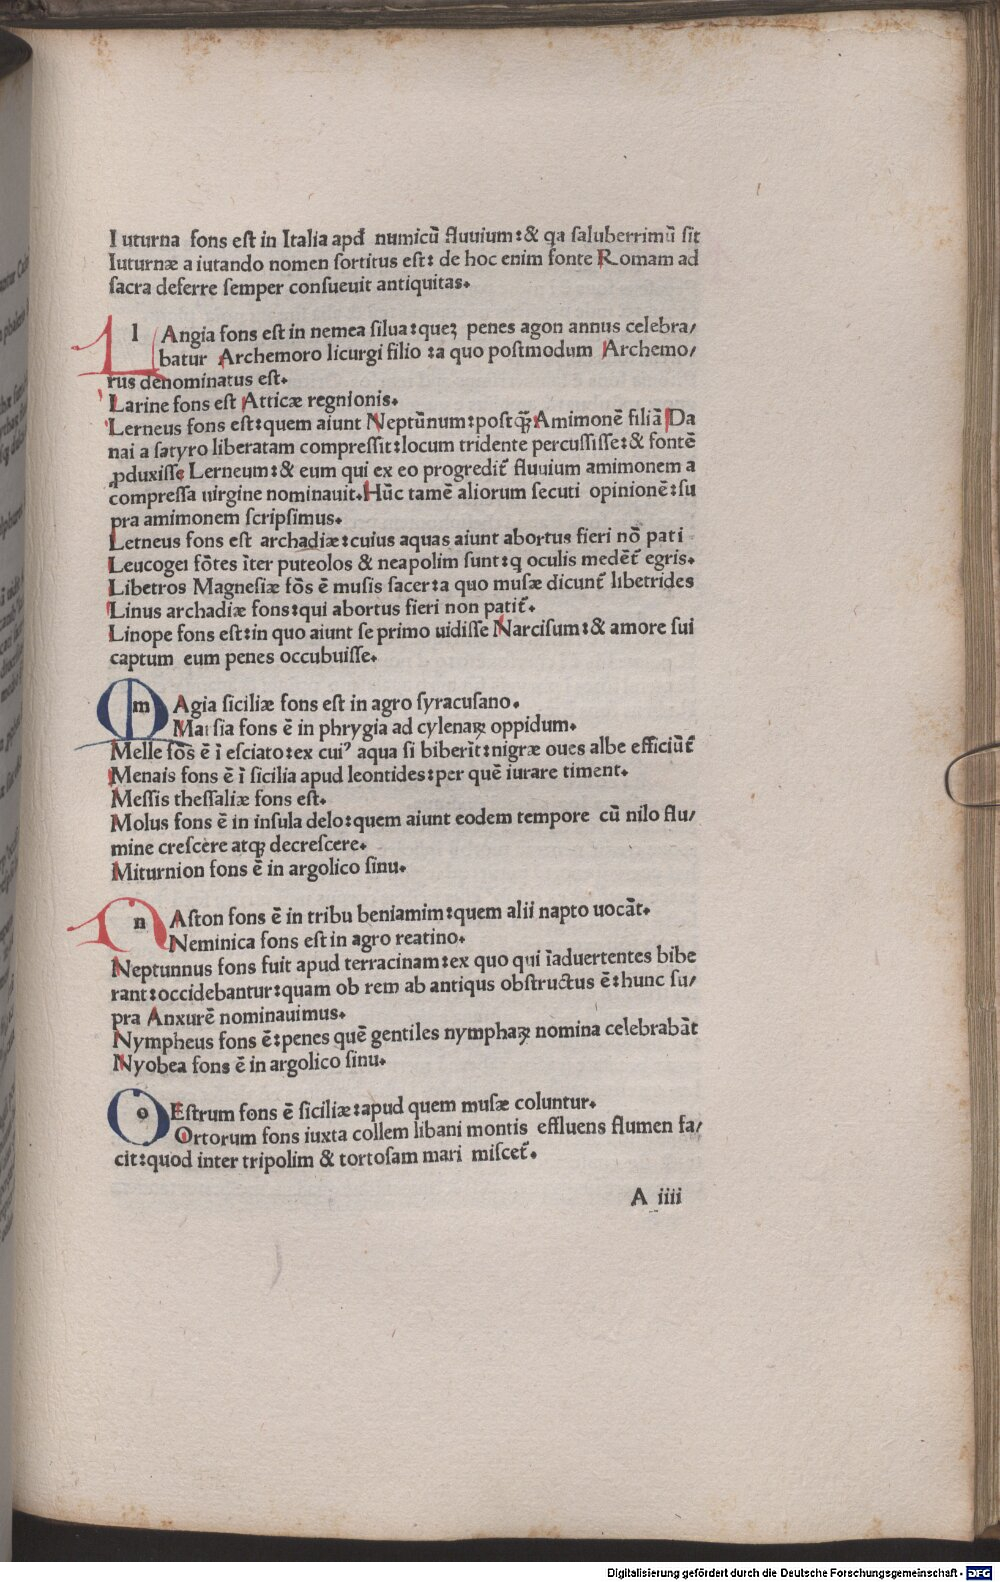 Iuturna fons eſt in Italia apđ numicū fluuium:& qa ſaluberrimū ſit
Iuturnæ a iutando nomen ſortitus eſt: de hoc enim fonte Romam ad
ſacra deferre ſemper conſueuit antiquitas.
l Angia fons eſt in nemea ſilua:queȝ penes agon annus celebra/
batur Archemoro licurgi filio :a quo poſtmodum Archemo/
rus denominatus eſt.
Larine fons eſt Atticæ regnionis.
Lerneus fons eſt:quem aiunt Neptūnum:poſtꝙ̄ Amimonē filiā Da
nai a ſatyro liberatam compreſſit:locum tridente percuſſiſſe:& fontē
ꝓduxiſſe Lerneum:& eum qui ex eo progredit̄ fluuium amimonem a
compreſſa uirgine nominauit. Hūc tamē aliorum ſecuti opinionē:ſu
pra amimonem ſcripſimus.
Letneus fons eſt archadiæ:cuius aquas aiunt abortus fieri nō pati
Leucogei fōtes īter puteolos & neapolim ſunt:q oculis medēt̄ egris.
Libetros Magneſiæ fōs ē muſis ſacer:a quo muſæ dicunt̄ libetrides
Linus archadiæ fons:qui abortus fieri non patit̄.
Linope fons eſt:in quo aiunt ſe primo uidiſſe Narciſum:& amore ſui
captum eum penes occubuiſſe.
m Agia ſiciliæ fons eſt in agro ſyracuſano.
Marſia fons ē in phrygia ad cylenaꝝ oppidum.
Melle fōs ē ī eſciato:ex cui⁹ aqua ſi biberīt:nigræ oues albe efficiūt̄
Menais fons ē ī ſicilia apud leontides:per quē iurare timent.
Meſſis theſſaliæ fons eſt.
Molus fons ē in inſula delo:quem aiunt eodem tempore cū nilo flu/
mine creſcere atqꝫ decreſcere.
Miturnion fons ē in argolico ſinu.
n Aſton fons ē in tribu beniamim:quem alii napto uocāt.
Neminica fons eſt in agro reatino.
Neptunnus fons fuit apud terracinam:ex quo qui īaduertentes bibe
rant:occidebantur:quam ob rem ab antiqus obſtructus ē:hunc ſu/
pra Anxurē nominauimus.
Nympheus fons ē:penes quē gentiles nymphaꝝ nomina celebrabāt
Nyobea fons ē in argolico ſinu.
o Eſtrum fons ē ſiciliæ:apud quem muſæ coluntur.
Ortorum fons iuxta collem libani montis effluens flumen fa/
cit:quod inter tripolim & tortoſam mari miſcet̄.
A iiii
Digitalisierung gefördert durch die Deutsche Forschungsgemeinschaft - DFG